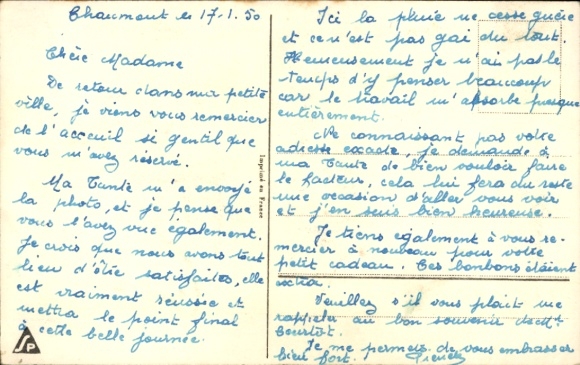 Chaumont le 17.1.50
Chère Madame
De retour dans ma petite
ville, je viens vous remercier
de l'acceuil si gentil que
vous m'avez réservé.
Ma Tante m'a envoyé
la photo, et je pense que
vous l'avez vue également.
Je crois que nous avons tout
lieu d'être satisfaites, elle
est vraiment réussie et
mettra le point final
à cette belle journée.
Imprimé en France
Ici la pluie ne cesse guère
et ce n'est pas gai du tout.
Heureusement je n'ai pas le
temps d'y penser beaucoup
car le travail m'absorbe presque
entièrement.
Ne connaissant pas votre
adresse exacte, je demande à
ma Tante de bien vouloir faire
le facteur, cela lui fera du reste
une occasion d'aller vous voir
et j'en suis bien heureuse.
Je tiens également à vous re-
mercier à nouveau pour votre
petit cadeau. Ces bonbons étaient
extra.
Veuillez s'il vous plait me
rappeler au bon souvenir de
Je me permets de vous embrasser
bien fort.